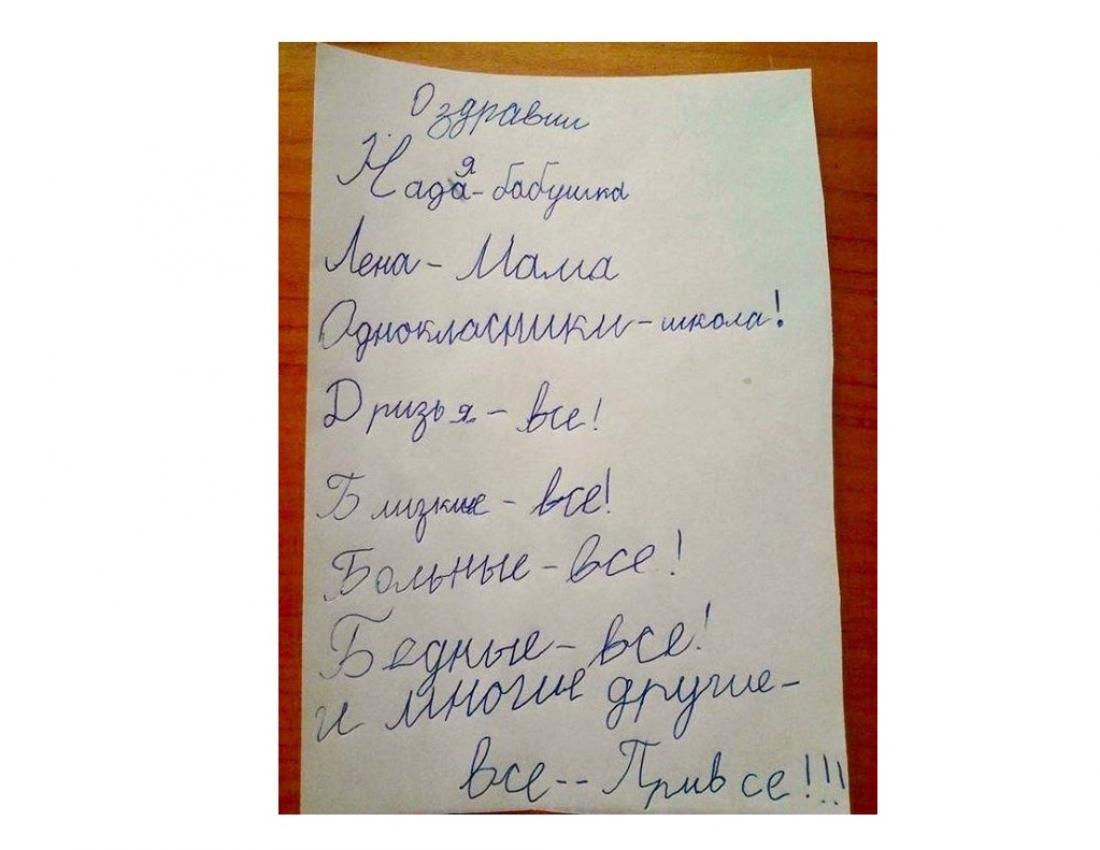 Оздравии
Надя-бабушка
Лена-Мама
Однокласники-школа!
Дризья-все!
Близкие-все!
Больные-все!
Бедные-все!
и многие другие-
все--Прив се!!!